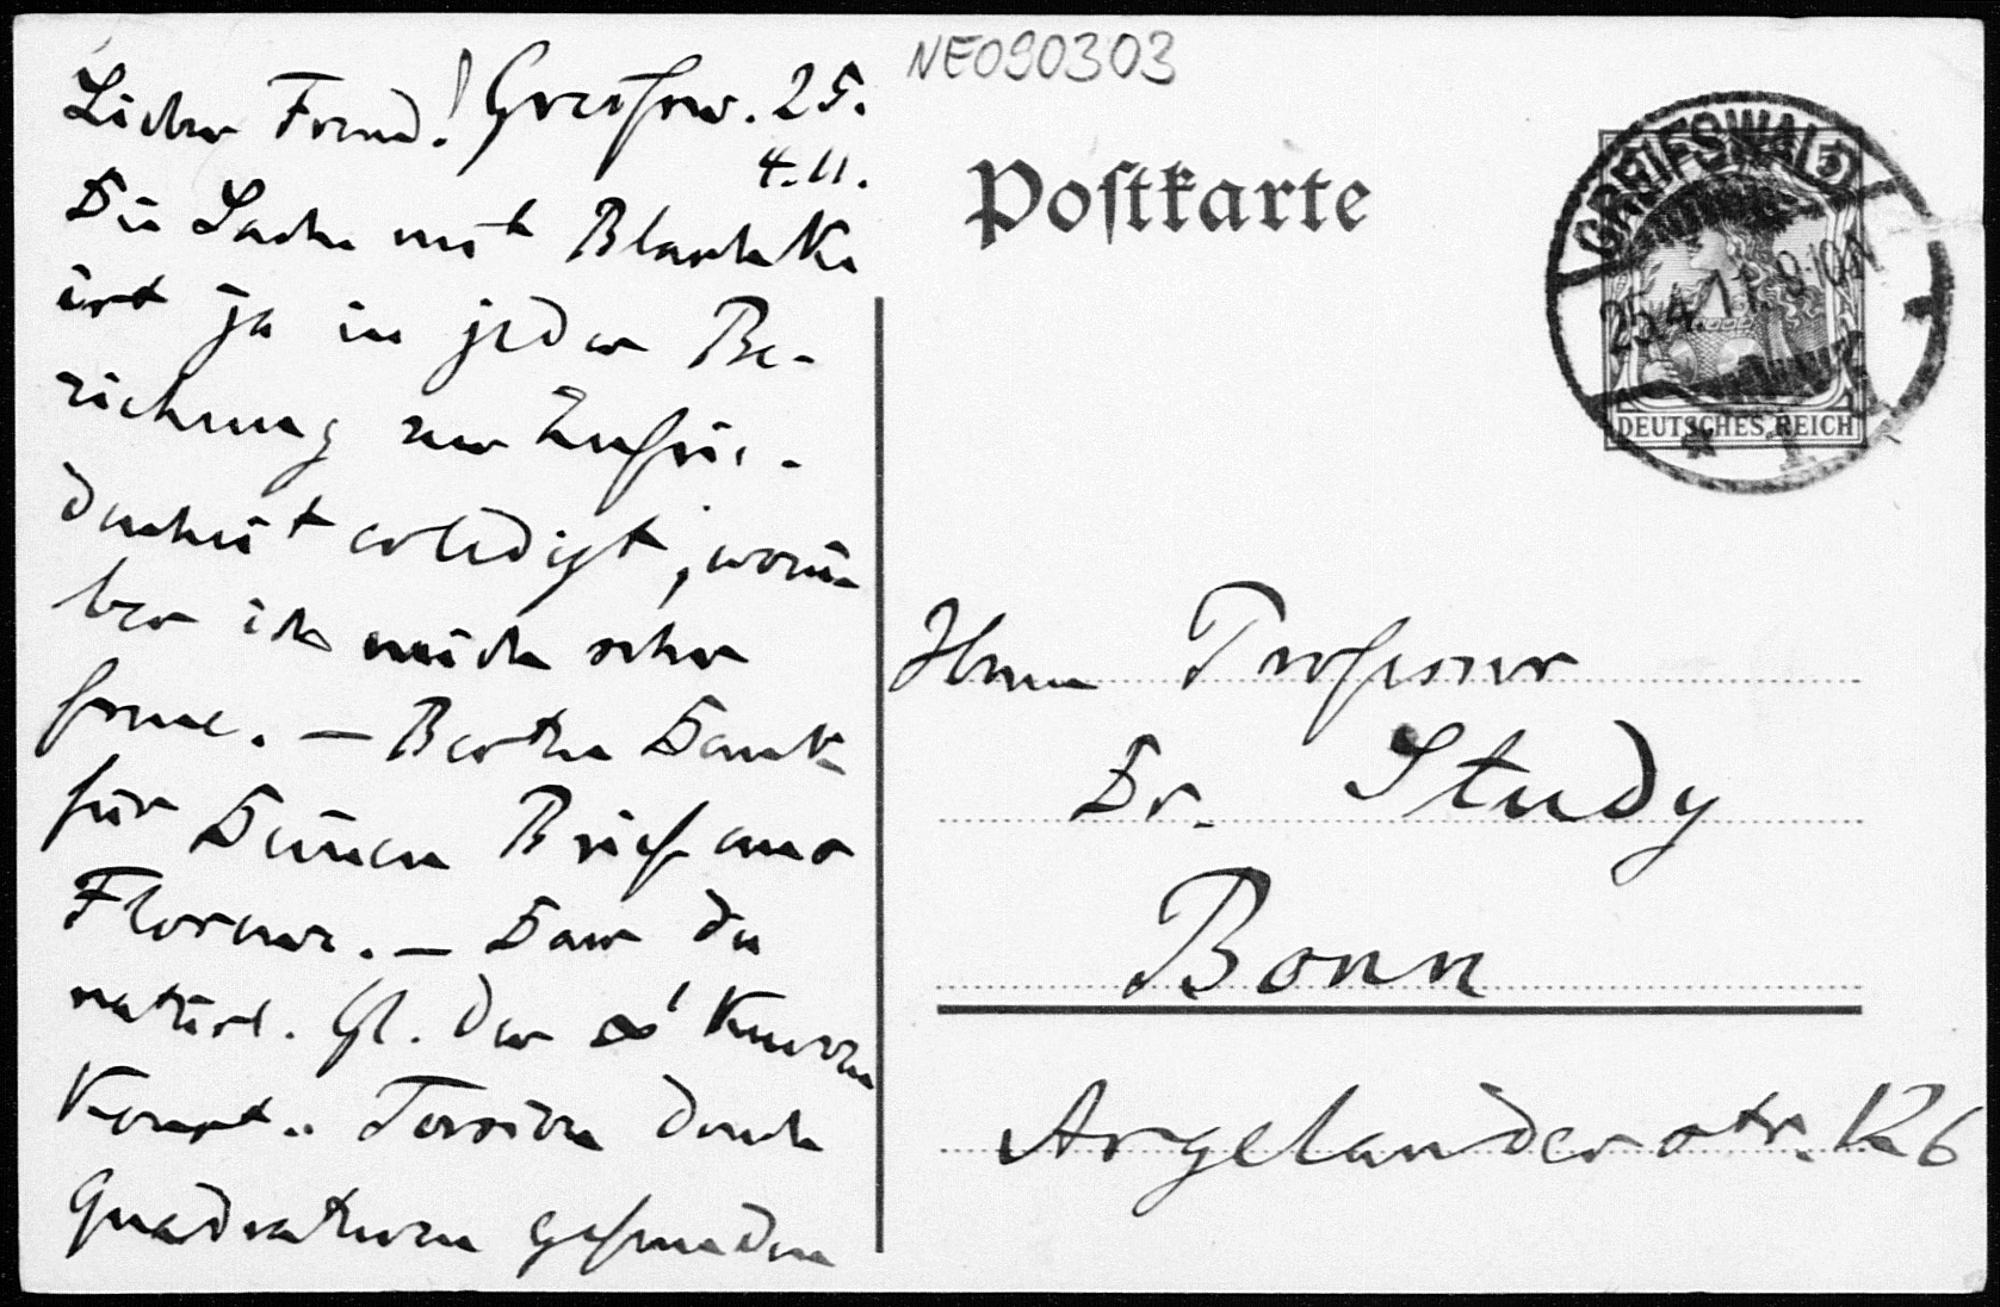 NE090303
Lieber Freund! Greifsw. 25.
4. 11.
Die Sache mit Blaschke
ist ja in jeder Be-
ziehung zur Zufrie-
denheit erledigt, worü-
ber ich mich sehr
freue. — Besten Dank
für Deinen Brief aus
Florenz. — Dass Du
natürl. Gl. der ∞ Kurven
Konst. Torsion durch
Quadraturen gefunden
Postkarte
GREIFSWALD
25.4.11.9-10N
* 1 *
5
DEUTSCHES REICH
Herrn Professor
Dr. Study
Bonn
Argelanderstr. 126